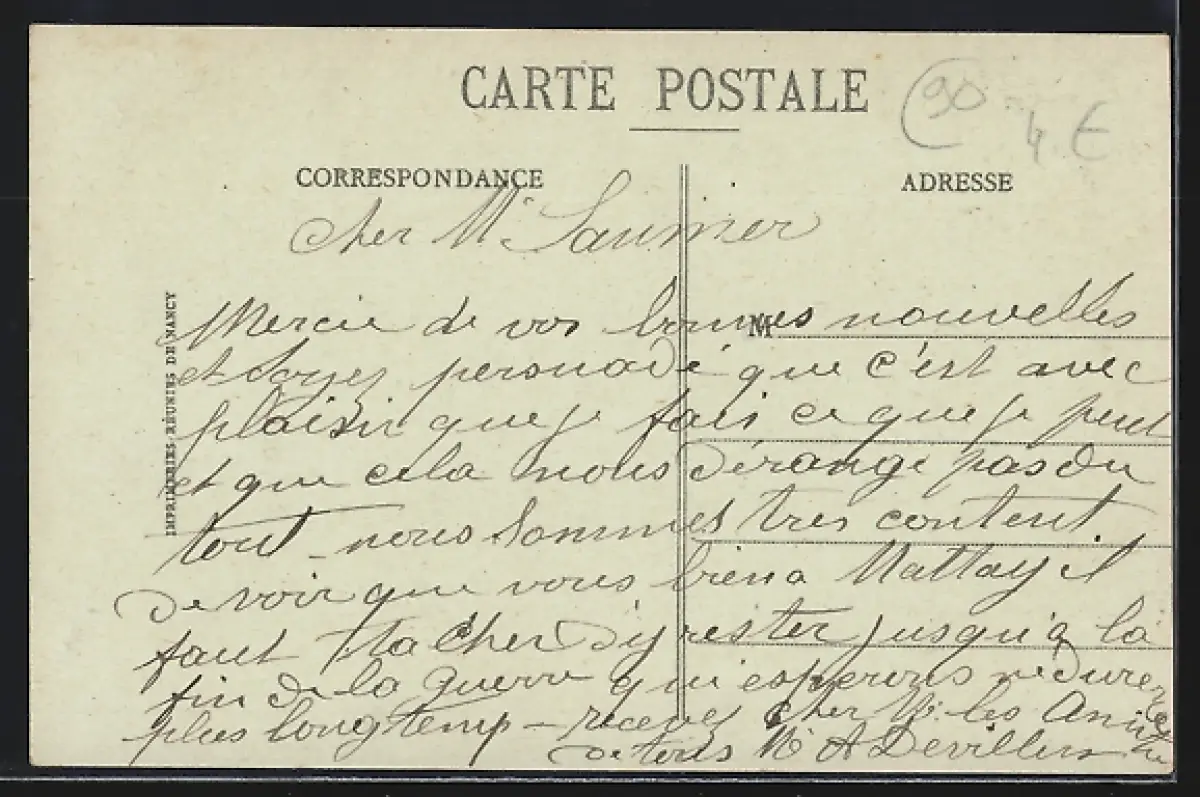 CARTE POSTALE
90
4 €
CORRESPONDANCE
ADRESSE
IMPRIMERIES RÉUNIES DE NANCY
Cher Mr Saunier
M
Mercie de vos bonnes nouvelles
et soyez persuadé que c'est avec
plaisir que je fais ce que je peut
et que cela nous dérange pas du
tout nous sommes tres content
de voir que vous bien a Mattay il
faut tacher d'y rester jusqu'a la
fin de la guerre qui esperons ne durera
plus longtemp - recevez cher Mr les
de tous Mr A Devillers